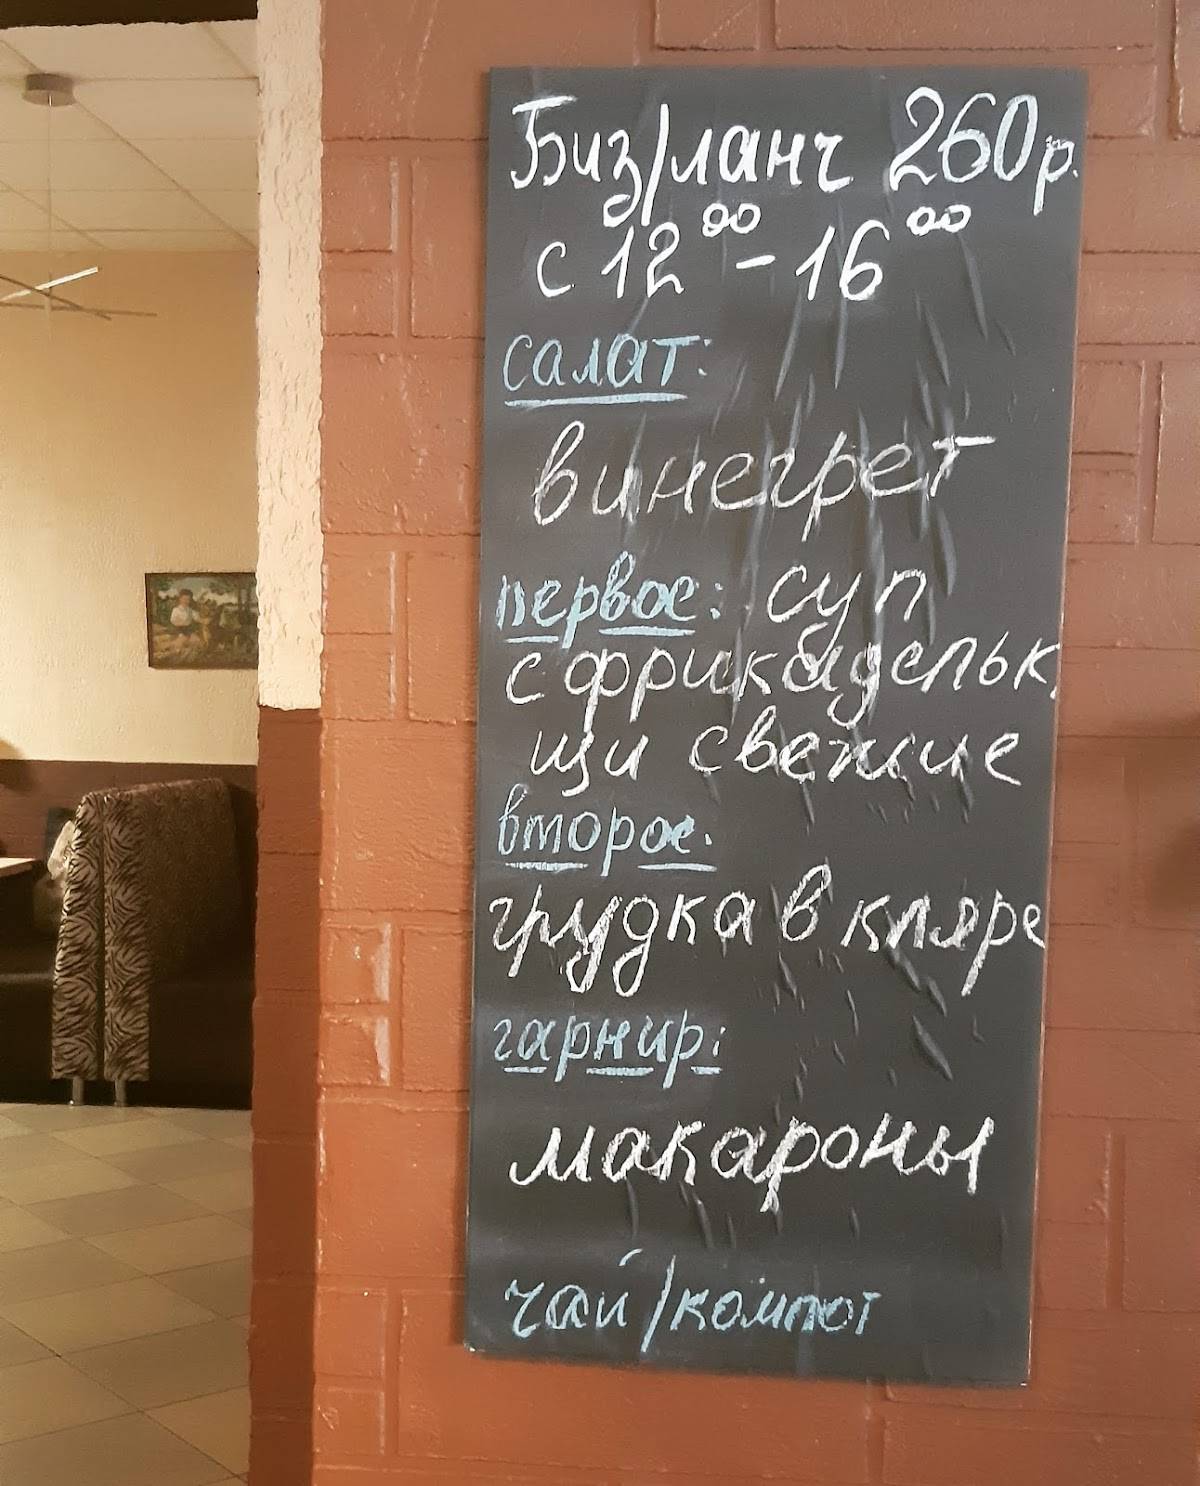 Биз/ланч 260р.
с 12⁰⁰ - 16⁰⁰
салат:
винегрет
первое: суп
с фрикадельк.
щи свежие
второе:
грудка в кляре
гарнир:
макароны
чай/компот